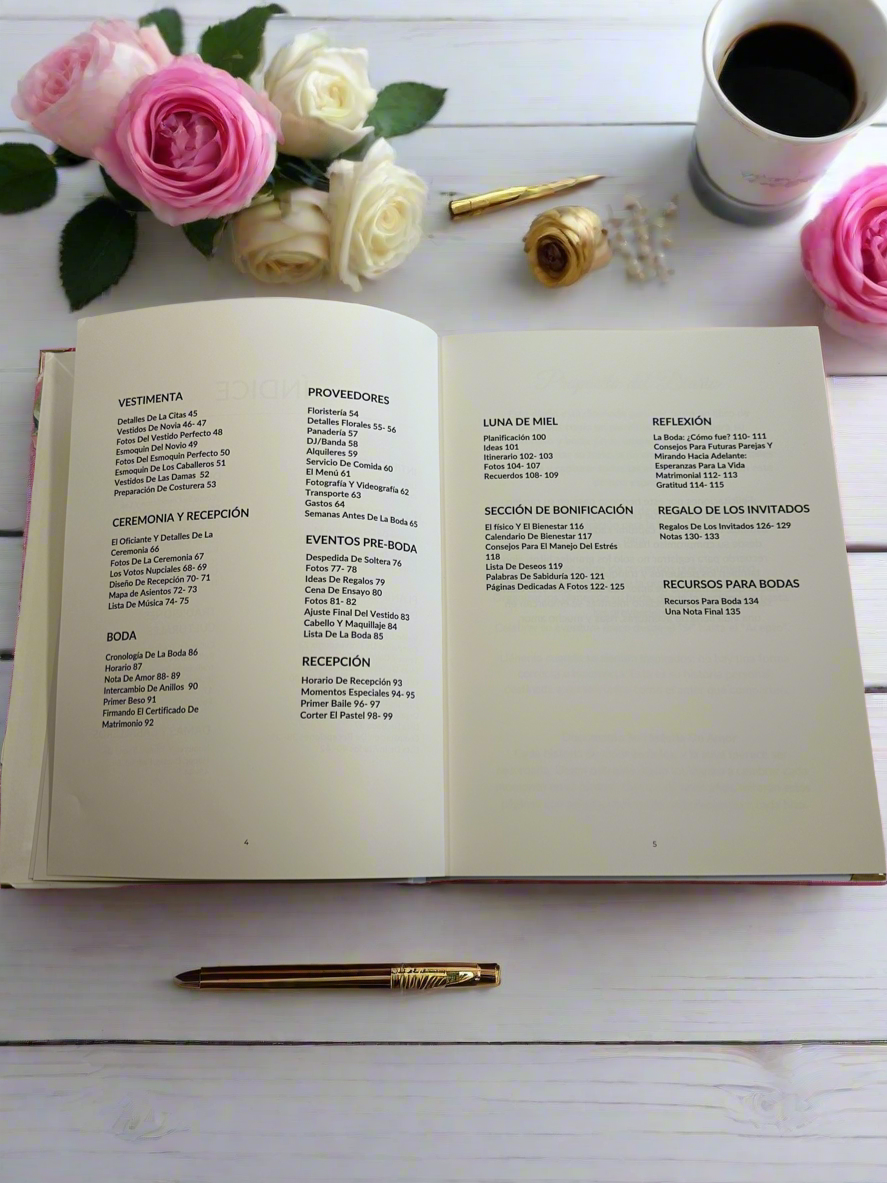 VESTIMENTA
Detalles De La Citas 45
Vestidos De Novia 46- 47
Fotos Del Vestido Perfecto 48
Esmoquin Del Novio 49
Fotos Del Esmoquin Perfecto 50
Esmoquin De Los Caballeros 51
Vestidos De Las Damas 52
Preparación De Costurera 53
CEREMONIA Y RECEPCIÓN
El Oficiante Y Detalles De La
Ceremonia 66
Fotos De La Ceremonia 67
Los Votos Nupciales 68- 69
Diseño De Recepción 70- 71
Mapa de Asientos 72- 73
Lista De Música 74- 75
BODA
Cronología De La Boda 86
Horario 87
Nota De Amor 88- 89
Intercambio De Anillos 90
Primer Beso 91
Firmando El Certificado De
Matrimonio 92
PROVEEDORES
Floristería 54
Detalles Florales 55- 56
Panadería 57
DJ/Banda 58
Alquileres 59
Servicio De Comida 60
El Menú 61
Fotografía Y Videografía 62
Transporte 63
Gastos 64
Semanas Antes De La Boda 65
EVENTOS PRE-BODA
Despedida De Soltera 76
Fotos 77- 78
Ideas De Regalos 79
Cena De Ensayo 80
Fotos 81- 82
Ajuste Final Del Vestido 83
Cabello Y Maquillaje 84
Lista De La Boda 85
RECEPCIÓN
Horario De Recepción 93
Momentos Especiales 94- 95
Primer Baile 96- 97
Corter El Pastel 98- 99
4
LUNA DE MIEL
Planificación 100
Ideas 101
Itinerario 102- 103
Fotos 104- 107
Recuerdos 108- 109
SECCIÓN DE BONIFICACIÓN
El físico Y El Bienestar 116
Calendario De Bienestar 117
Consejos Para El Manejo Del Estrés
118
Lista De Deseos 119
Palabras De Sabiduría 120- 121
Páginas Dedicadas A Fotos 122- 125
REFLEXIÓN
La Boda: ¿Cómo fue? 110- 111
Consejos Para Futuras Parejas Y
Mirando Hacia Adelante:
Esperanzas Para La Vida
Matrimonial 112- 113
Gratitud 114- 115
REGALO DE LOS INVITADOS
Regalos De Los Invitados 126- 129
Notas 130- 133
RECURSOS PARA BODAS
Recursos Para Boda 134
Una Nota Final 135
5
ÍNDICE